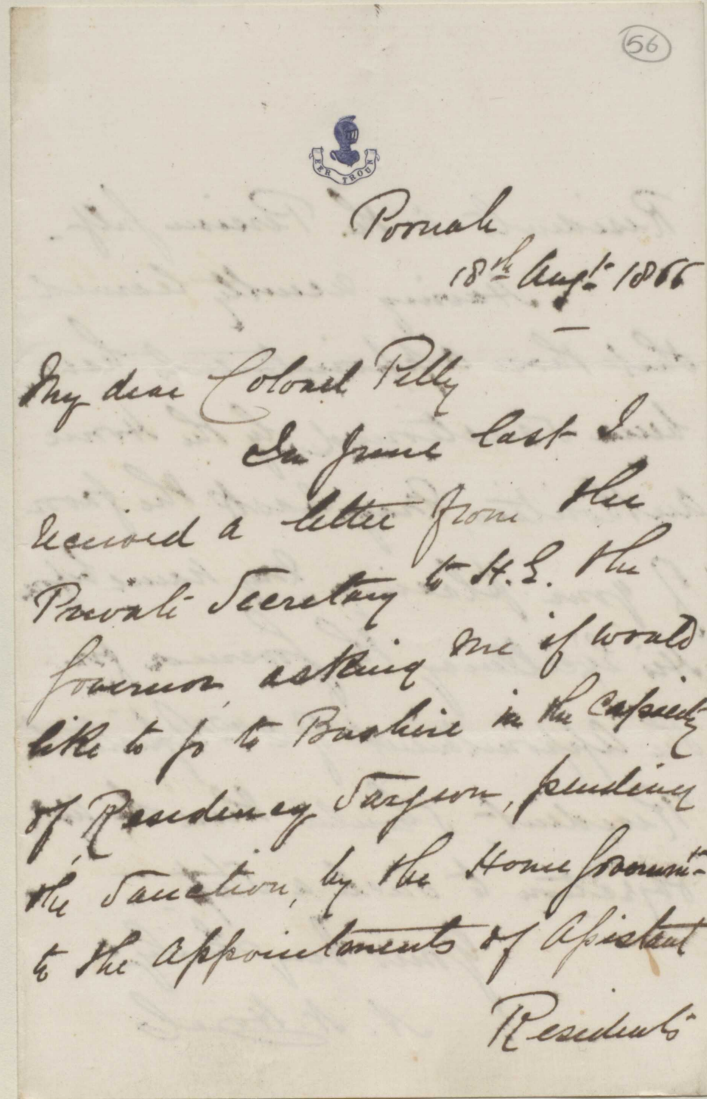 56
PER TROUR
Poonah
18th Augt 1866
My dear Colonel Pelly
In June last I
received a letter from the
Private Secretary to H.E. the
Governor, asking me if would
like to go to Bushire in the capacity
of Residency Surgeon, pending
the sanction, by the Home Governmt
to the appointments of Assistant
Residents